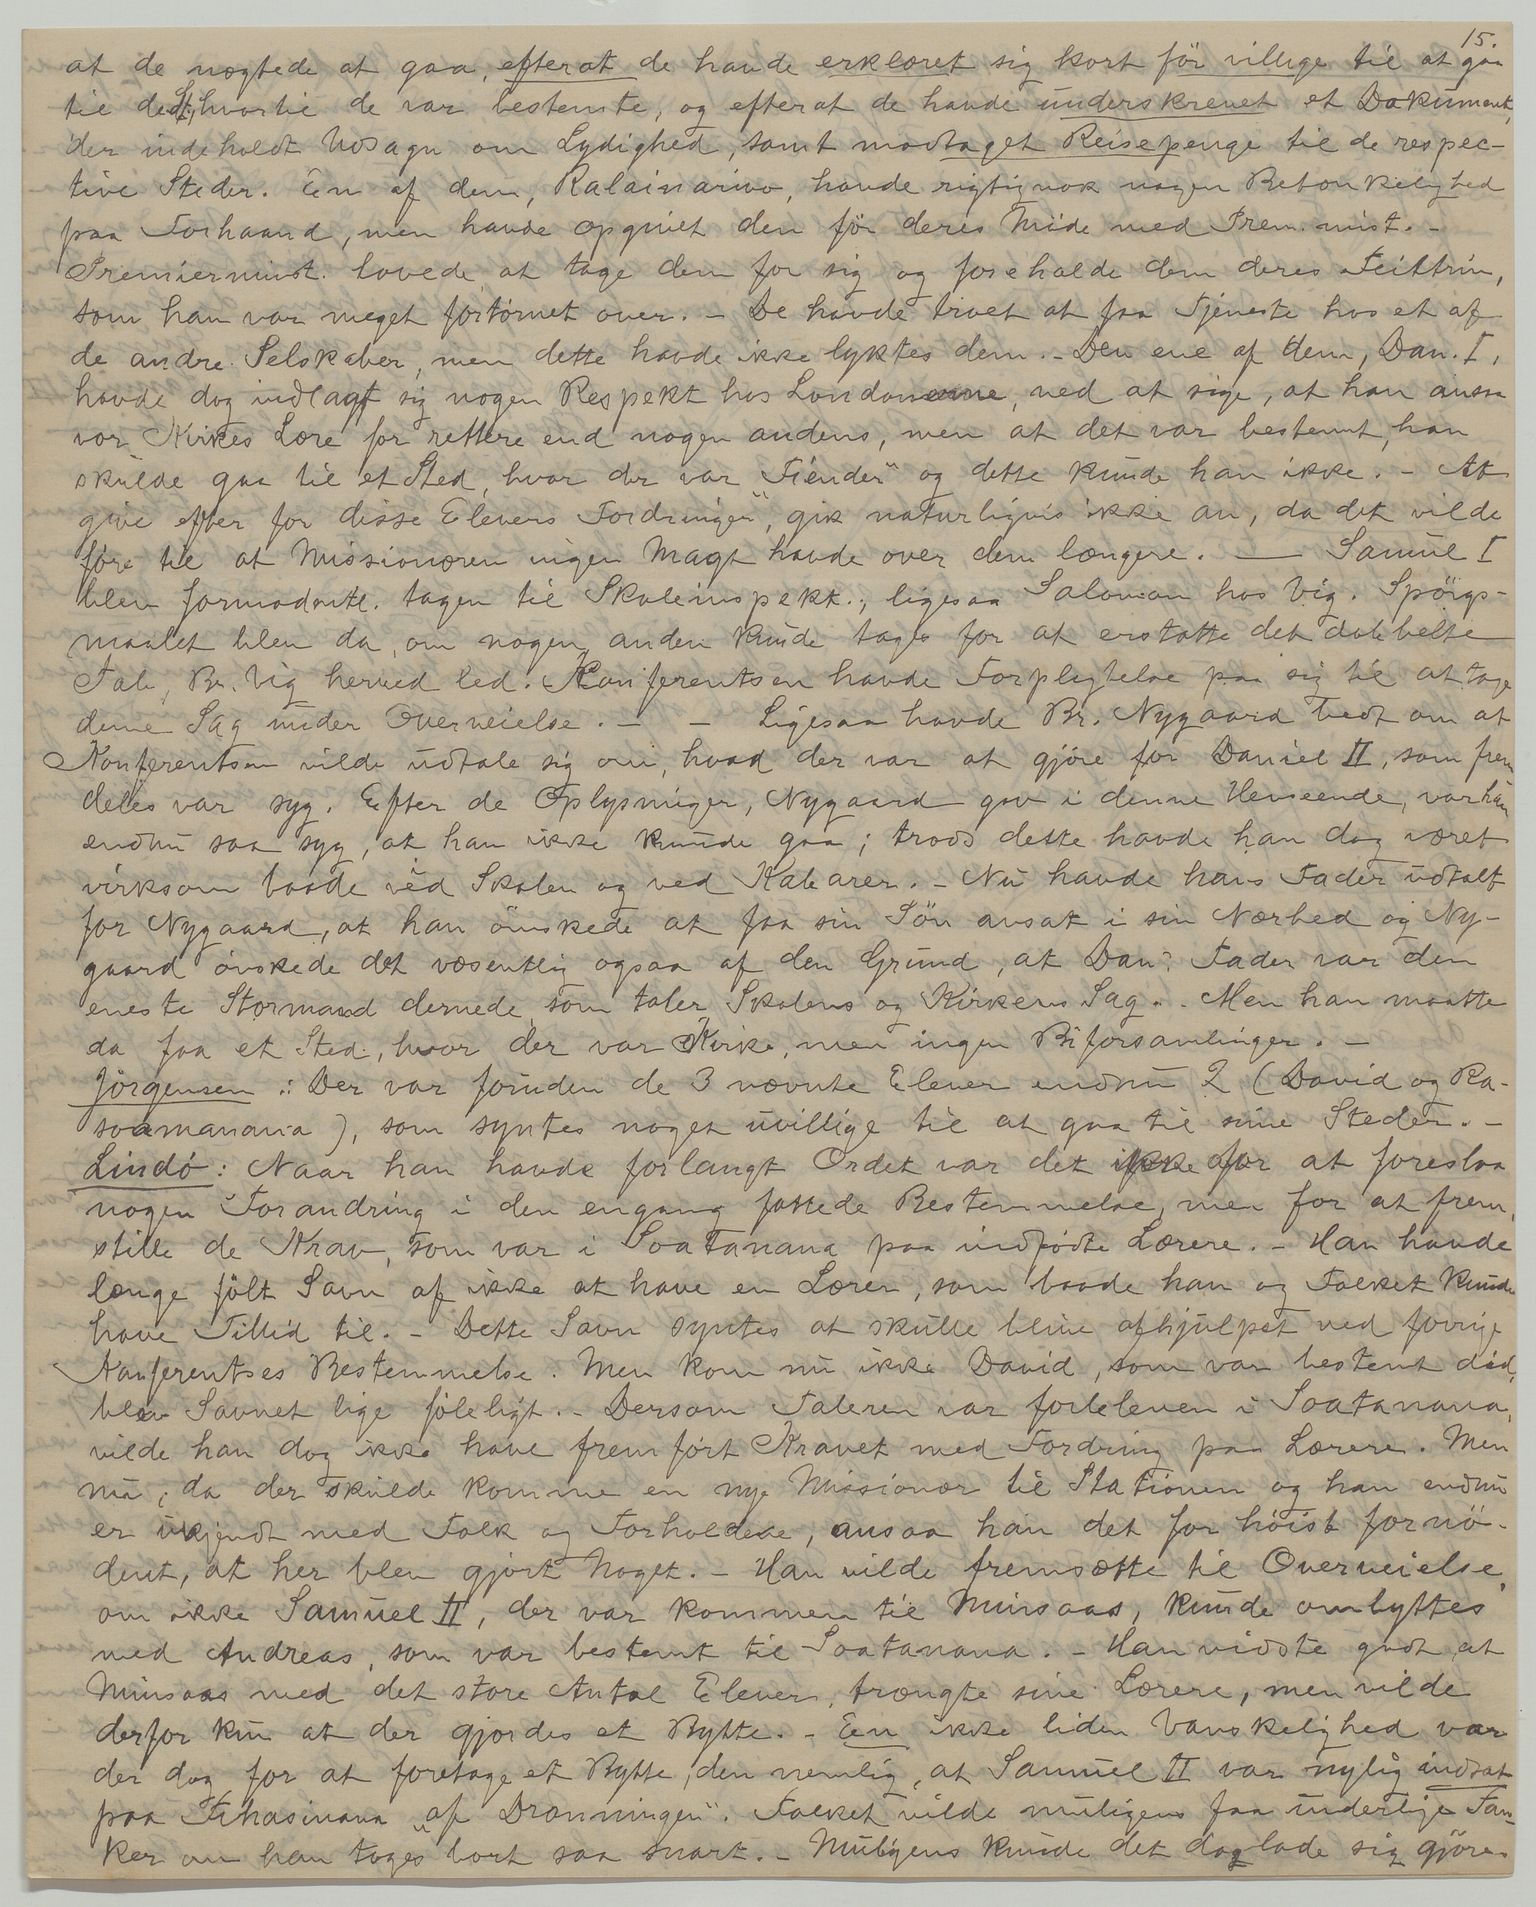 15.
at de nægtede at gaa, efterat de havde erklæret sig kort för villige til at gaa
til det St., hvortil de var bestemte, og efterat de havde underskrevet et Dokument,
der indeholdt Udsagn om Lydighed, samt modtaget Reisepenge til de respec-
tive Steder. En af dem, Ralainarivo, havde rigtignok nogen Betænkelighed
paa Forhaand, men havde opgivet den för deres Möde med Prem.minist. -
Premiermınist. lovede at tage dem for sig og foreholde dem deres Feiltrin,
som han var meget fortörnet over. - De havde trvet at faa Tjeneste hos et af
de andre Selskaber, men dette havde ikke lyktes dem. - Den ene af dem, Dan. I,
havde dog indlagt sig nogen Respekt hos Londonerne, ved at sige, at han ansaa
vor Kirkes Lære for rettere end nogen andens, men at det var bestemt, han
skulde gaa til et Sted, hvor der var "Fiender" og dette kunde han ikke. - At
give efter for disse Elevers "Fordringer", gik naturligvis ikke an, da det vilde
före til at Missionæren ingen Magt havde over dem længere. — Samuel I
blev formodentl. tagen til Skoleinspekt., ligesaa Salomon hos Vig. Spörgs-
maalet blev da, om nogen anden kunde tages for at erstatte det dobbelte
Tab, Br. Vig herved led. Konferentsen havde Forpligtelse paa sig til at tage
denne Sag under Overveielse. - - Ligesaa havde Br. Nygaard bedt om at
Konferentsen vilde udtale sig om, hvad der var at gjöre for Daniel II, som frem-
deles var syg. Efter de Oplysninger, Nygaard gav i denne Henseende, var han
endnu saa syg, at han ikke kunde gaa; trods dette havde han dog været
virksom baade ved Skolen og ved Kabarer. - Nu havde hans Fader udtalt
for Nygaard, at han önskede at faa sin Sön ansat i sin Nærhed og Ny-
gaard önskede det væsentlig ogsaa af den Grund, at Dan.s Fader var den
eneste Stormand dernede, som taler Skolens og Kirkens Sag. - Men han maatte
da faa et Sted, hvor der var Kirke, men ingen Biforsamlinger. -
Jörgensen: Der var foruden de 3 nævnte Elever endnu 2 (David og Ra-
soamanana), som syntes noget uvillige til at gaa til sine Steder. -
Lindö: Naar han havde forlangt Ordet var det ikke for at foreslaa
nogen Forandring i den engang fattede Bestemmelse, men for at frem-
stille de Krav, som var i Soatanana paa indfödte Lærere. - Han havde
længe fölt Savn af ikke at have en Lærer, som baade han og Folket kunde
have Tillid til. - Dette Savn syntes at skulle blive afhjulpet ved forrige
Konferentses Bestemmelse. Men kom nu ikke David, som var bestemt did,
blev Savnet lige föleligt. - Dersom Taleren var forbleven i Soatanana,
vilde han dog ikke have fremfört Kravet med Fordring paa Lærere. Men
nu, da der skulde komme en nye Missionær til Stationen og han endnu
er ukjendt med Folk og Forholdene, ansaa han det for höist fornö-
dent, at her blev gjort Noget. - Han vilde fremsætte til Overveielse,
om ikke Samuel II, der var kommen til Minsaas, kunde ombyttes
med Andreas, som var bestemt til Soatanana. - Han vidste godt, at
Minsaas med det store Antal Elever, trængte sine Lærere, men vilde
derfor kun at der gjordes et Bytte. - Een ikke liden Vanskelighed var
der dog for at foretage et Bytte, den nemlig, at Samuel II var nylig indsat
paa Fihasinana "af Dronningen". Folket vilde muligens faa underlige Tan-
ker om han toges bort saa snart. - Muligens kunde det dog lade sig gjöre.